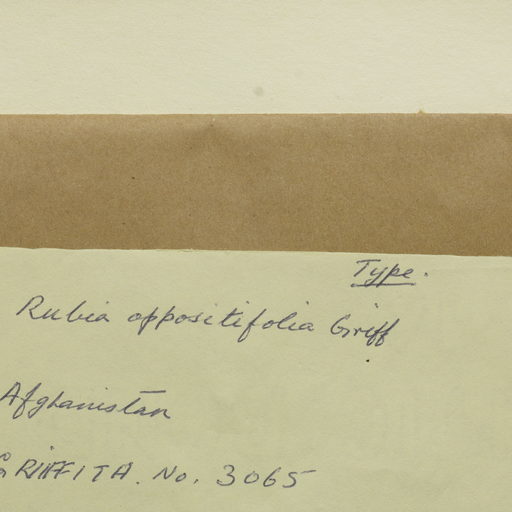 Type.
Rubia oppositifolia Griff.
Afghanistan
GRIFFITH. No. 3065